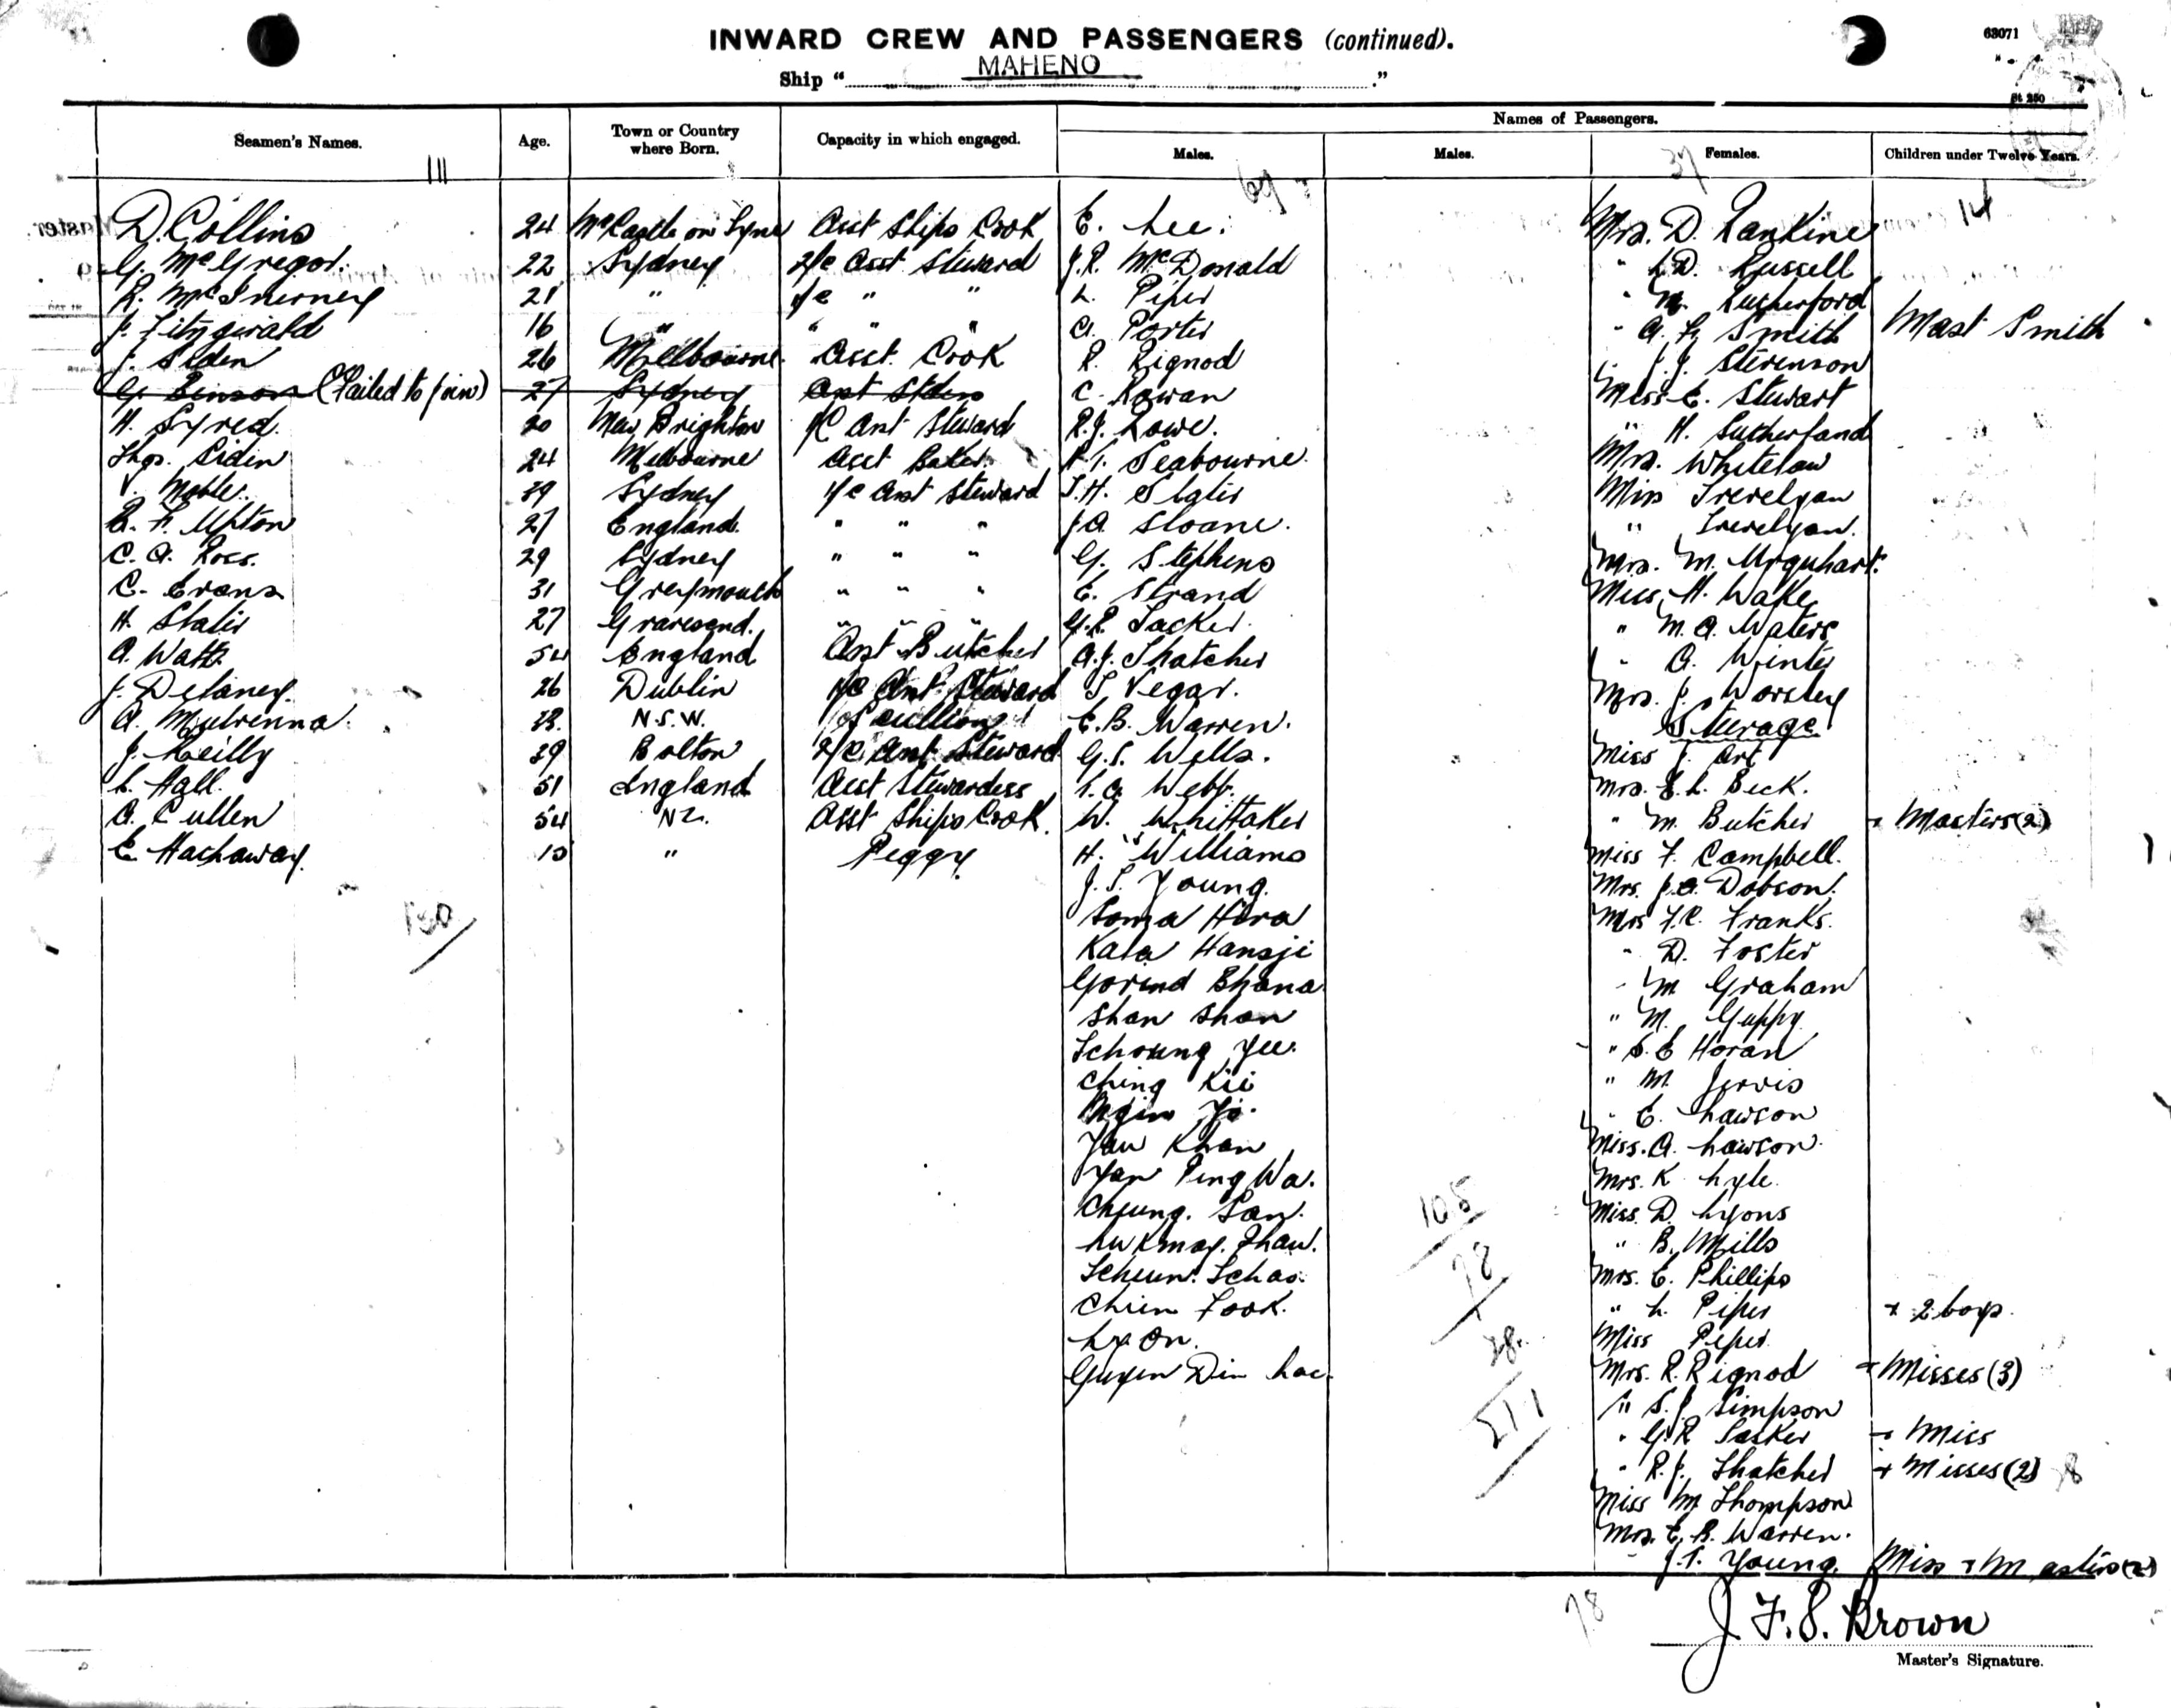 INWARD CREW AND PASSENGERS (continued).
63071
Ship " MAHENO ."
Names of Passengers.
Seamen's Names.
Age.
Town or Country where Born.
Capacity in which engaged.
Males.
Males.
Females.
Children under Twelve Years.
111
69
37
14
D. Collins 24 Asst Ships Cook E. Lee. Mrs. D. Rankine
G. McGregor. 22 Sydney 2/c Asst Steward J.R. McDonald " L.D. Russell
R. McInerney 21 " 1/c " " L. Piper " M. Rutherford
J. Fitzgerald 16 " " " " A. Porter " A. H. Smith Mast Smith
J. Slden 26 Melbourne Asst. Cook R. Rignod " J. J. Stevenson
G. Benson (Failed to join) 27 Sydney C. Rowan Miss E. Stewart
H. Syred. 20 New Brighton 1/C Asst Steward R.J. Rowe. " H. Sutherland
Thos. Siden 24 Melbourne Asst Baker. Seabourne. Mrs. Whitelaw
V. Noble. 39 Sydney 1/c Asst Steward T.H. Slater Miss Trevelyan
E. F. Upton 27 England. " " " J.A. Sloane. " Trevelyan.
C. A. Ross. 29 Sydney " " " G. Stephens Mrs. M. Urquhart.
C. Evans 31 Greymouth " " " E. Strand Miss H. Wake
H. Slater 27 Gravesend. " " " G.R. Tasker. " M. A. Waters
A. Watt. 54 England Asst Butcher A.J. Thatcher " A. Winter
J. Delaney. 26 Dublin 1/C Asst Steward S. Vegar. Mrs. J. Worsley
A. Mulvenna. N.S.W. Scullion E.B. Warren. Steerage
J. Reilly 29 Bolton 2/C Asst Steward G.S. Wells. Miss J. Art
L. Hall. 51 England Asst Stewardess Webb. Mrs. E.L. Beck.
A. Cullen 54 NZ. Asst Ships Cook. W. Whittaker " M. Butcher + Masters (2)
E. Hathaway. 15 " Peggy H. Williams Miss F. Campbell.
J.T. Young. Mrs. J.A. Dobson.
130
Soma Hira Mrs F.C. Franks.
Kala Hansji " D. Foster
Govind Bhana " M Graham
Shan Shan " M. Guppy
Schoung Yee. " S.E Horan
Ching Kii " M. Jervis
Ngin Yo. " E. Lawson
Yau Khan Miss. A. Lawson.
Yan Ping Wa. Mrs. K Lyle.
Cheung. San. 105 Miss. D. Lyons
" B. Mills
Scheun. Schao. 78 Mrs. E. Phillips
Chien Fook. " L. Piper + 2 boys.
Ly On. 28. Miss Piper
Guyen Din Loc. Mrs. R. Rignod + Misses (3)
211 " S. J. Simpson
" G.R Tasker + Miss
" R.J. Thatcher + Misses (2)
Miss M. Thompson
Mrs. E. B. Warren.
" J.T. Young. Miss + Masters (2)
78
J F.S. Brown
Master's Signature.